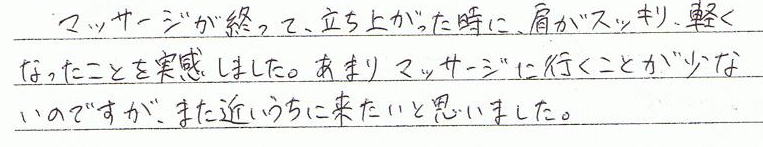 マッサージが終って、立ち上がった時に、肩がスッキリ、軽く
なったことを実感しました。あまりマッサージに行くことが少な
いのですが、また近いうちに来たいと思いました。